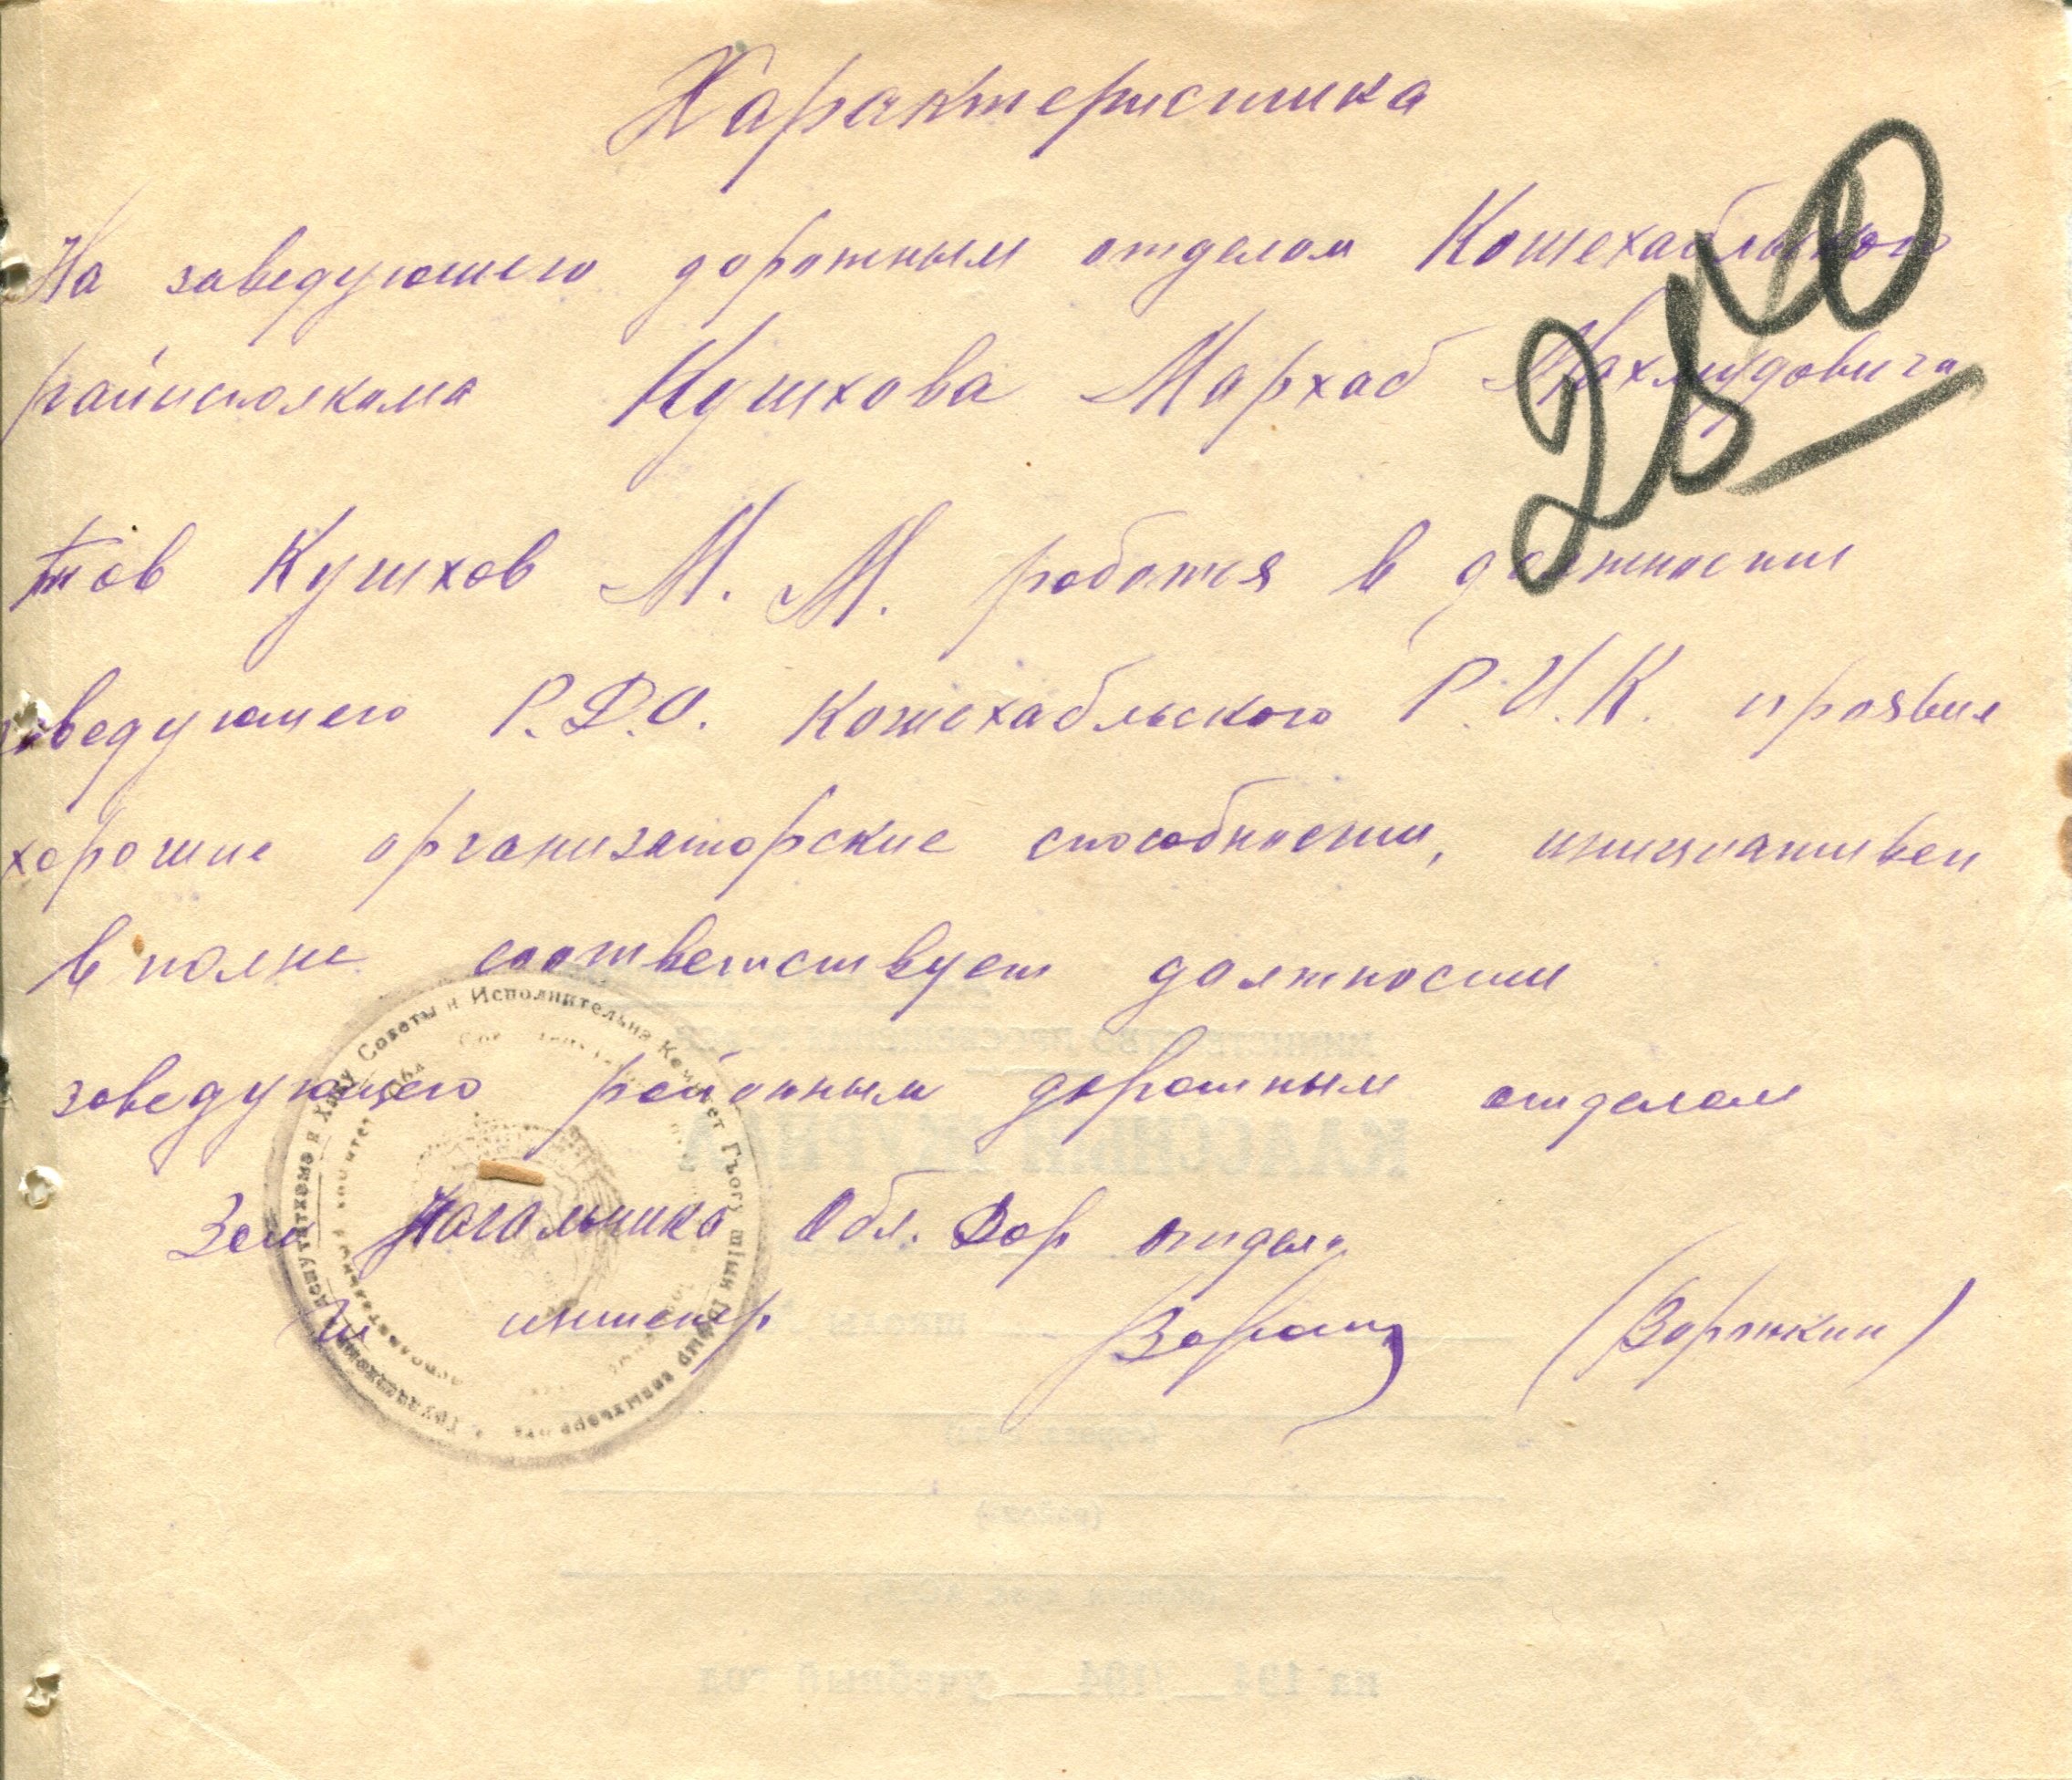 Характеристика
На заведующего дорожным отделом Кошехабльского
райисполкома Кушхова Мархаб Махмудовича
250
тов Кушхов М. М. работая в должности
заведующего Р.Д.О. Кошехабльского Р.И.К. проявил
хорошие организаторские способности, инициативен
в полне соответствует должности
заведующего районным дорожным отделом
Зам Начальника Обл. Дор отдела
и инженер (Воряжкин)
Советы и Исполнительнэ Комитет
КЛАССНЫЙ ЖУРНАЛ
школы
(район)
на 194 /194 учебный год